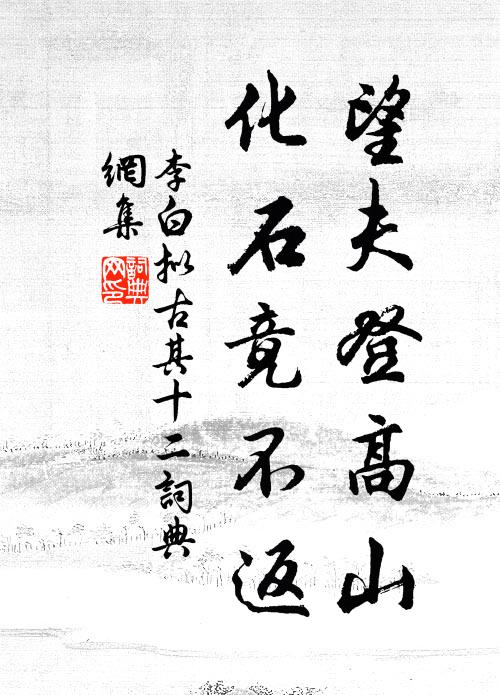 望夫登高山
化石竟不返
李白拟古其十二詞典
網集
詞典
网印